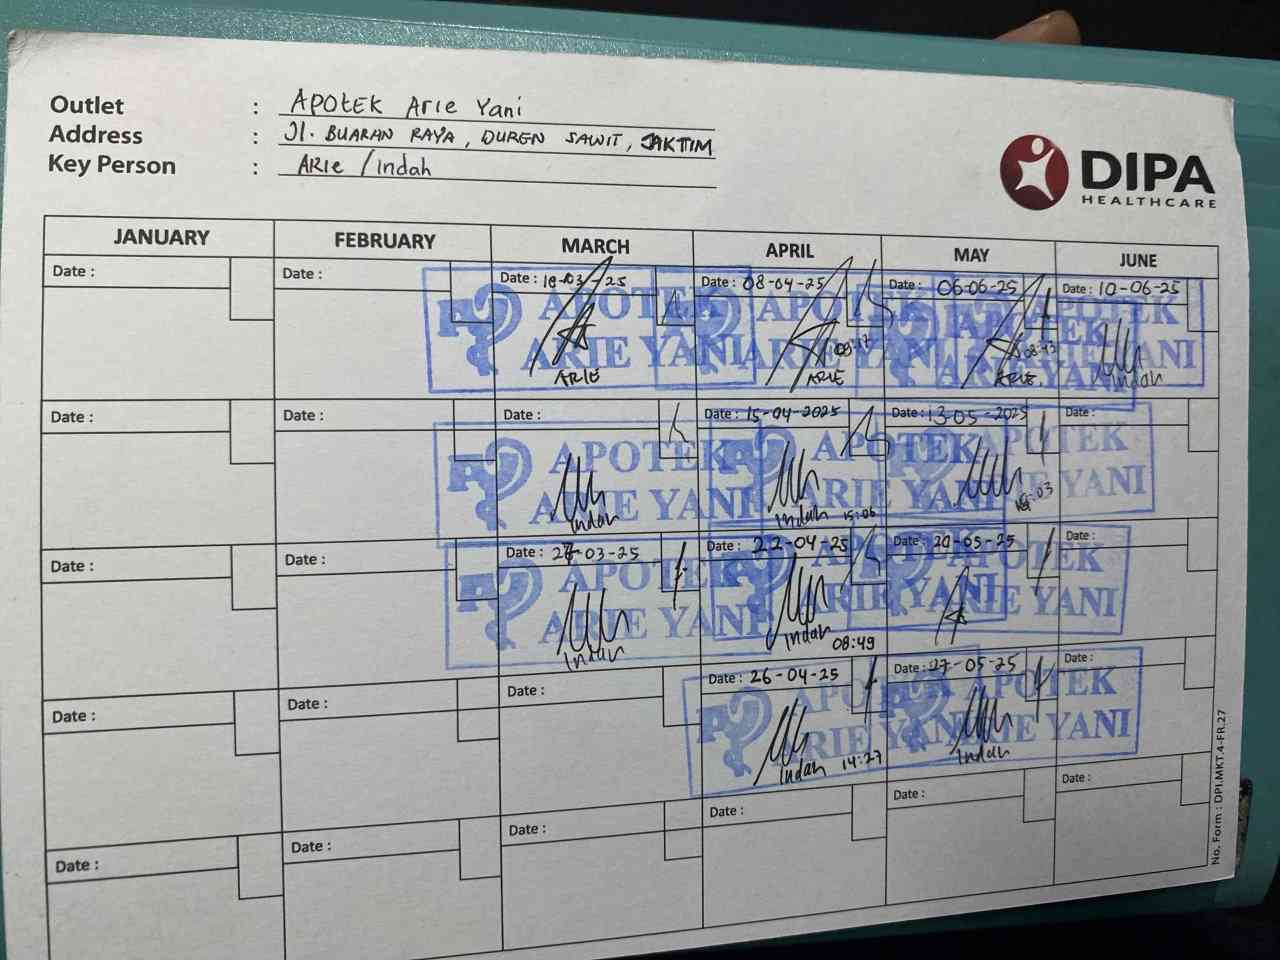 Outlet : APOTEK Arie Yani
Address : Jl. BUARAN RAYA, DUREN SAWIT, JAKTIM
Key Person : ARIE / Indah
DIPA
HEALTHCARE
JANUARY FEBRUARY MARCH APRIL MAY JUNE
Date : Date : Date : 10-03-25 Date : 08-04-25 Date : 06-06-25 Date : 10-06-25
APOTEK APOTEK APOTEK APOTEK
ARIE YANI ARIE YANI ARIE YANI ARIE YANI
09:17 08:43
ARIE ARIE ARIE Indah
Date : Date : Date : Date : 15-04-2025 Date : 13-05-2025 Date :
APOTEK APOTEK APOTEK
ARIE YANI ARIE YANI ARIE YANI
Indah Indah 15:06
Date : Date : Date : 27-03-25 Date : 22-04-25 Date : 20-05-25 Date :
APOTEK APOTEK APOTEK
ARIE YANI ARIE YANI ARIE YANI
Indah Indah 08:49
Date : Date : Date : Date : 26-04-25 Date : 27-05-25 Date :
APOTEK APOTEK
ARIE YANI ARIE YANI
Indah 14:27 Indah
Date : Date : Date : Date : Date : Date :
No. Form : DPI.MKT.4-FR.27